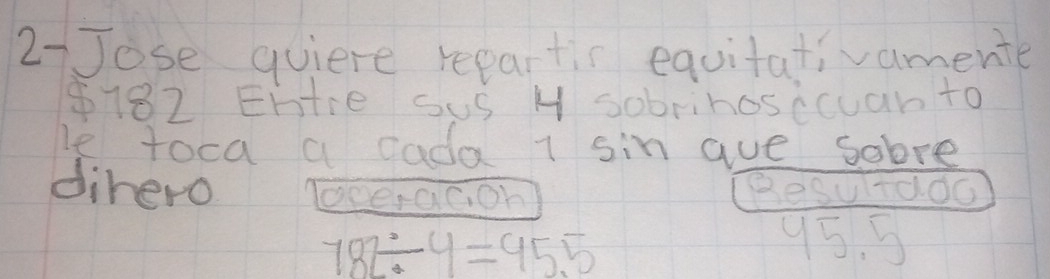 2-Jose quiere repartir equitativamente
$182 Entre sus 4 sobrinos ¿cuanto
le toca a cada 1 sin que sobre
dinero operacion Resultado
182÷4=45.5 45.5